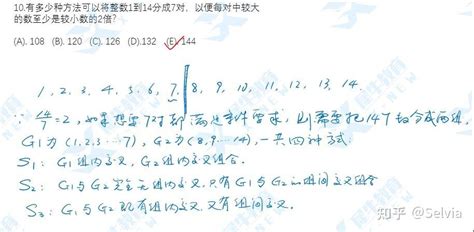 10.有多少种方法可以将整数1到14分成7对，以便每对中较大
的数至少是较小数的2倍？
(A). 108 (B). 120 (C). 126 (D).132 (E). 144
1, 2, 3, 4, 5, 6, 7, 8, 9, 10, 11, 12, 13, 14.
∵ 14/7=2，如果想要7对都满足条件要求，则需要把14个数分成两组，
G1为 (1,2,3…7)，G2为(8,9…14)，一共四种方式.
S1: G1组内交叉，G2组内交叉组合.
S2: G1与G2完全无组内交叉，只有G1与G2的组间交叉组合
S3: G1与G2既有组内交叉，又有组间交叉.
知乎 @Selvia